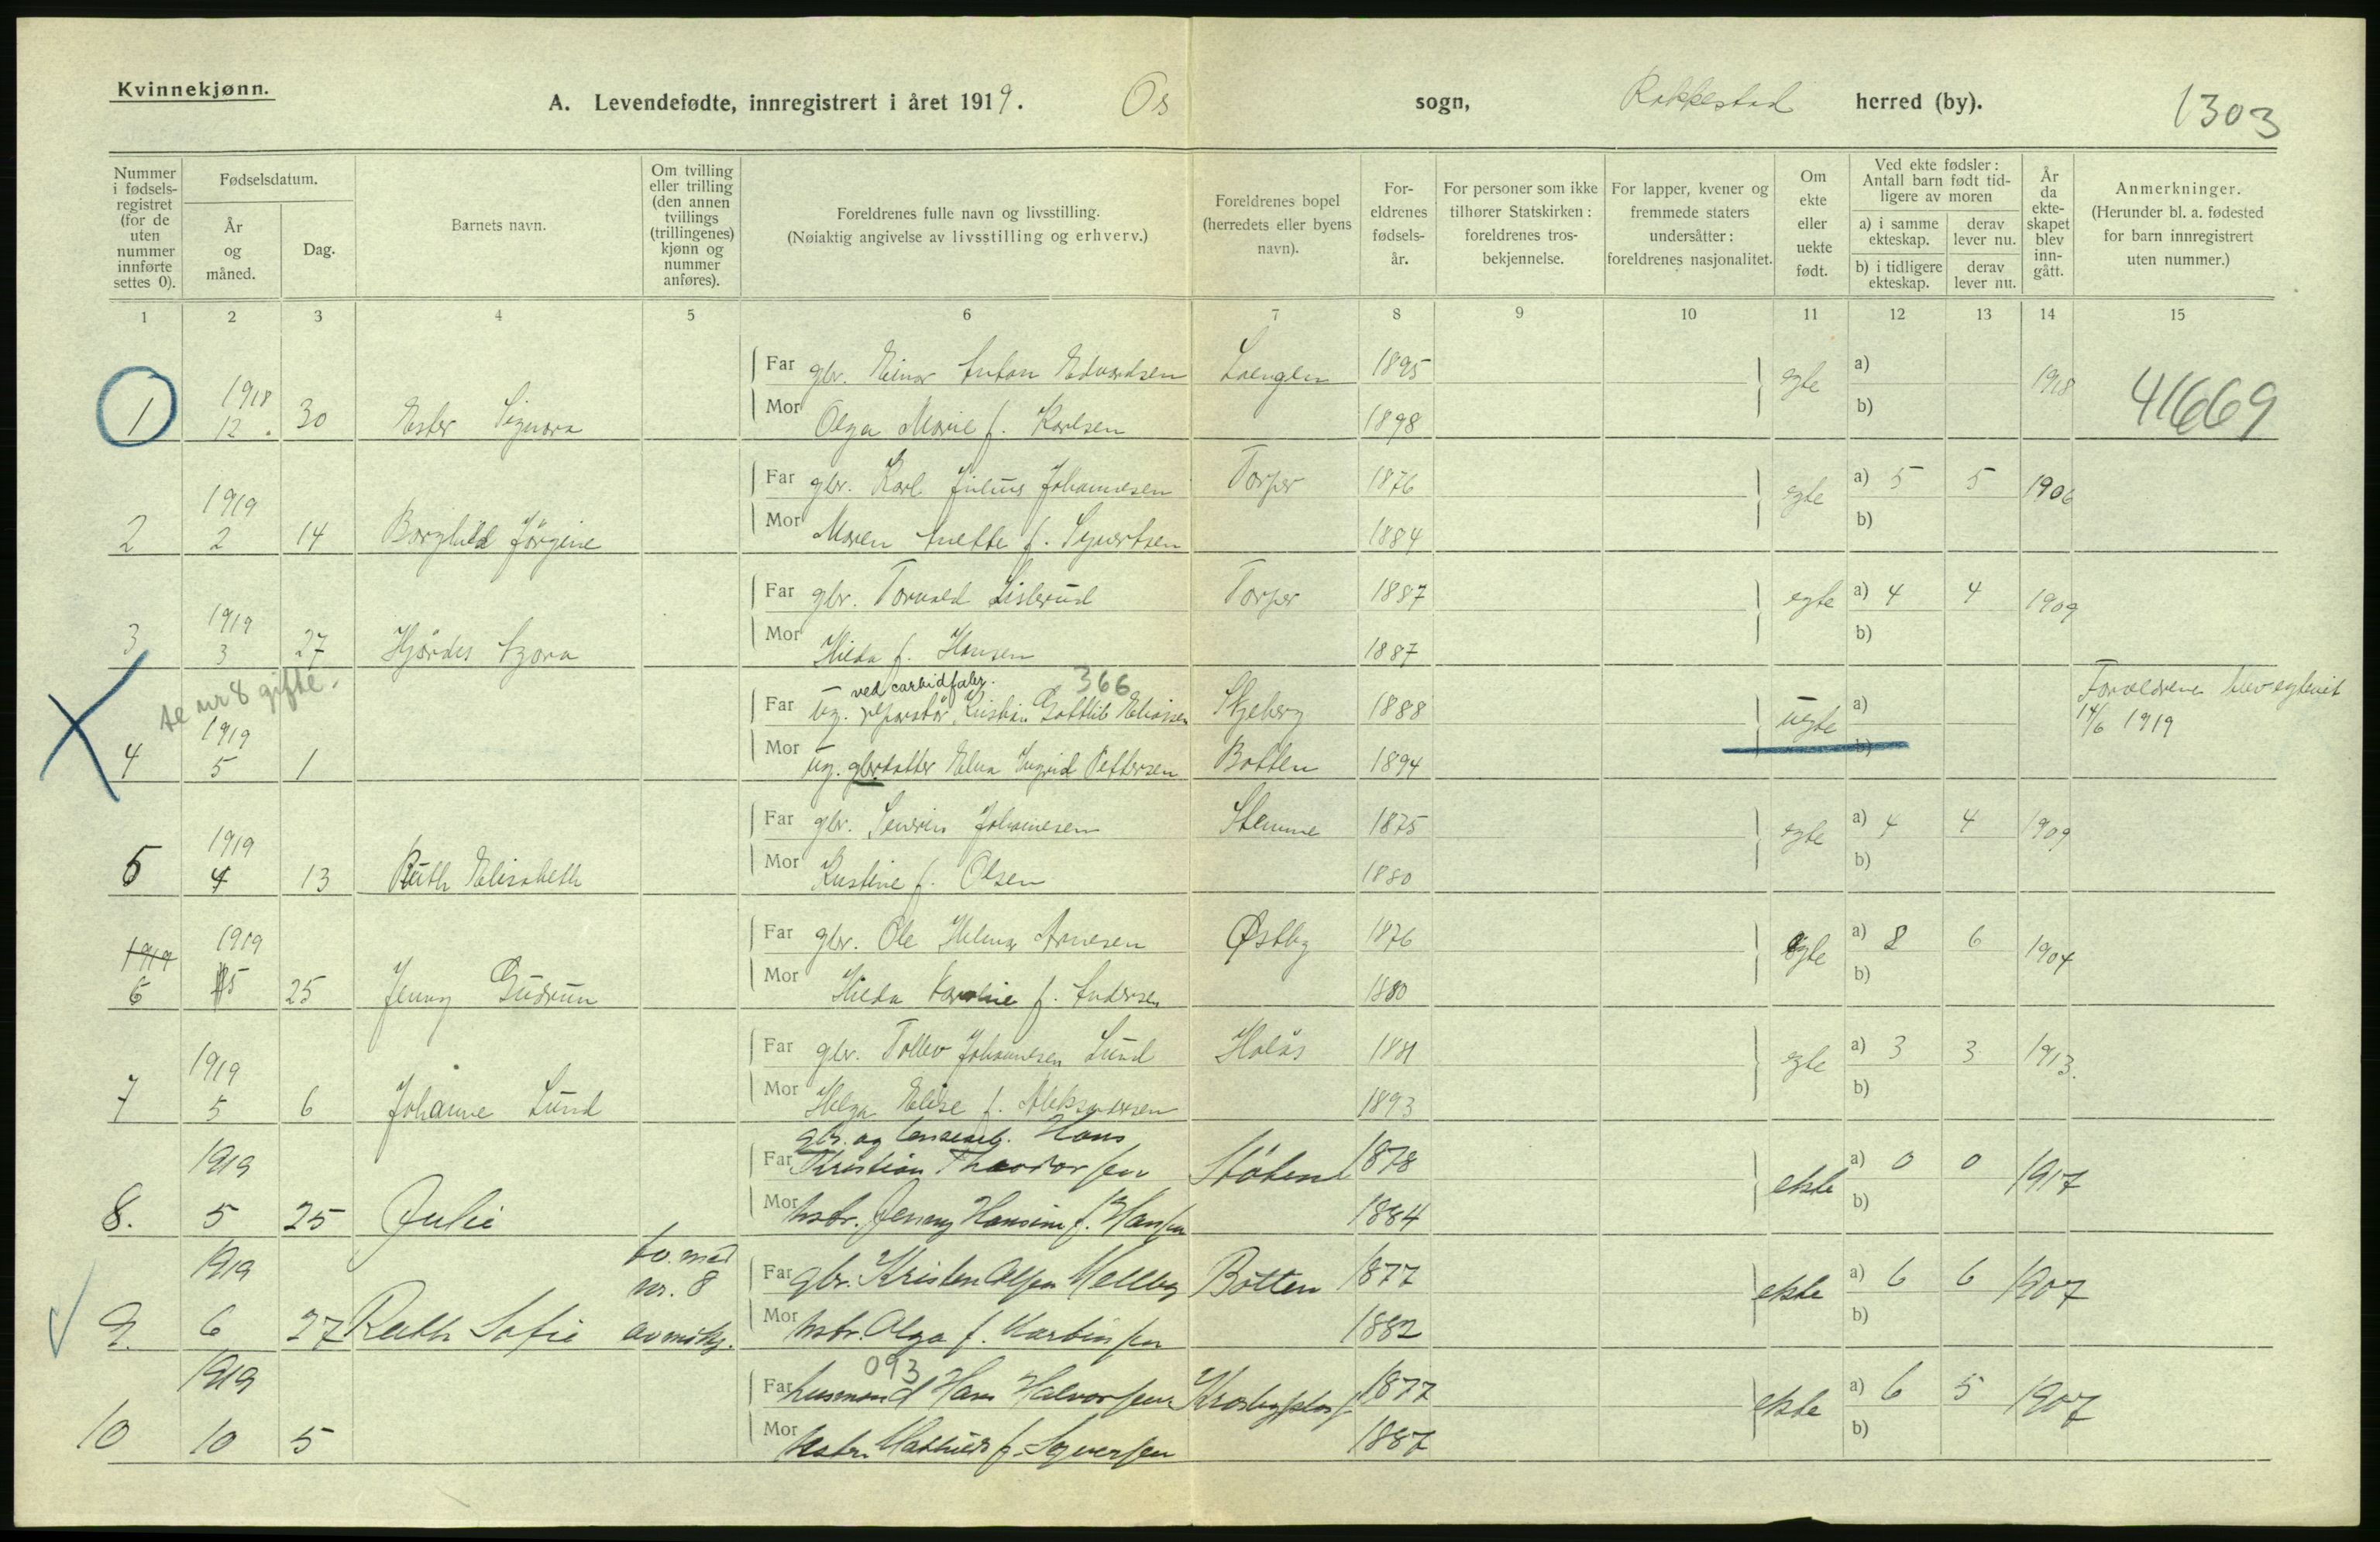 Kvinnekjønn.
A. Levendefødte, innregistrert i året 1919. Os sogn, Rakkestad herred (by). 1303
Nummer i fødsels-registret (for de uten nummer innførte settes 0).
Fødselsdatum.
År og måned.
Dag.
Barnets navn.
Om tvilling eller trilling (den annen tvillings (trillingenes) kjønn og nummer anføres).
Foreldrenes fulle navn og livsstilling.
(Nøiaktig angivelse av livsstilling og erhverv.)
Foreldrenes bopel (herredets eller byens navn).
For-eldrenes fødsels-år.
For personer som ikke tilhører Statskirken: foreldrenes tros-bekjennelse.
For lapper, kvener og fremmede staters undersåtter: foreldrenes nasjonalitet.
Om ekte eller uekte født.
Ved ekte fødsler: Antall barn født tid-ligere av moren
a) i samme ekteskap.
derav lever nu.
b) i tidligere ekteskap.
derav lever nu.
År da ekte-skapet blev inn-gått.
Anmerkninger.
(Herunder bl. a. fødested for barn innregistrert uten nummer.)
1 2 3 4 5 6 7 8 9 10 11 12 13 14 15
Far gbr. Einar Anton Edvardsen 1895 egte a) 1918 41669
1 1918 12. 30 Ester Signora Mor Olga Marie f. Karlsen 1898 b)
Far gbr. Karl Julius Johannesen Torper 1876 egte a) 5 5 1906
2 1919 2 14 Borghild Jörgine Mor Maren Anette f. Syvertsen 1884 b)
Far gbr. Torvald Lislerud Torper 1887 egte a) 4 4 1909
3 1919 3 27 Hjördis Agora Mor Hilda f. Hansen 1887 b)
se nr 8 gifte.
ved carbidfabr. 366
Far ug. reparatör Kristian Gottlib Eliassen Skjeberg 1888 uegte a) Forældrene blev egteviet 14/6 1919
4 1919 5 1 Mor ug. gbrdatter Elna Ingrid Pettersen Botten 1894 b)
Far gbr. Severin Johannesen Stemme 1875 egte a) 4 4 1909
5 1919 4 13 Ruth Elisabeth Mor Kristine f. Olsen 1880 b)
Far gbr. Ole Helmer Arnesen Østby 1876 egte a) 8 6 1904
1919
6 1919 5 25 Jenny Gudrun Mor Hilda Karoline f. Andersen 1880 b)
Far gbr. Tollev Johannesen Lund Holås 1881 egte a) 3 3 1913.
7 1919 5 6 Johanne Lund Mor Helga Elise f. Aleksandersen 1893 b)
gbr. og Hans
Far Kristian Theodorsen 1878 ekte a) 0 0 1917
8. 1919 5 25 Julie Mor hstr. Jenny Hansine f. Hansen 1884 b)
tv. med nr. 8 av mandkj.
Far gbr. Kristen Olsen Melleby Botten 1877 ekte a) 6 6 1907
9. 1919 6 27 Ruth Sofie Mor hstr. Olga f. Martinsen 1882 b)
093
Far husmand Hans Halvorsen Krosbyplas 1877 ekte a) 6 5 1907
10 1919 10 5 Mor hstr. Mathilde f. Syversen 1887 b)